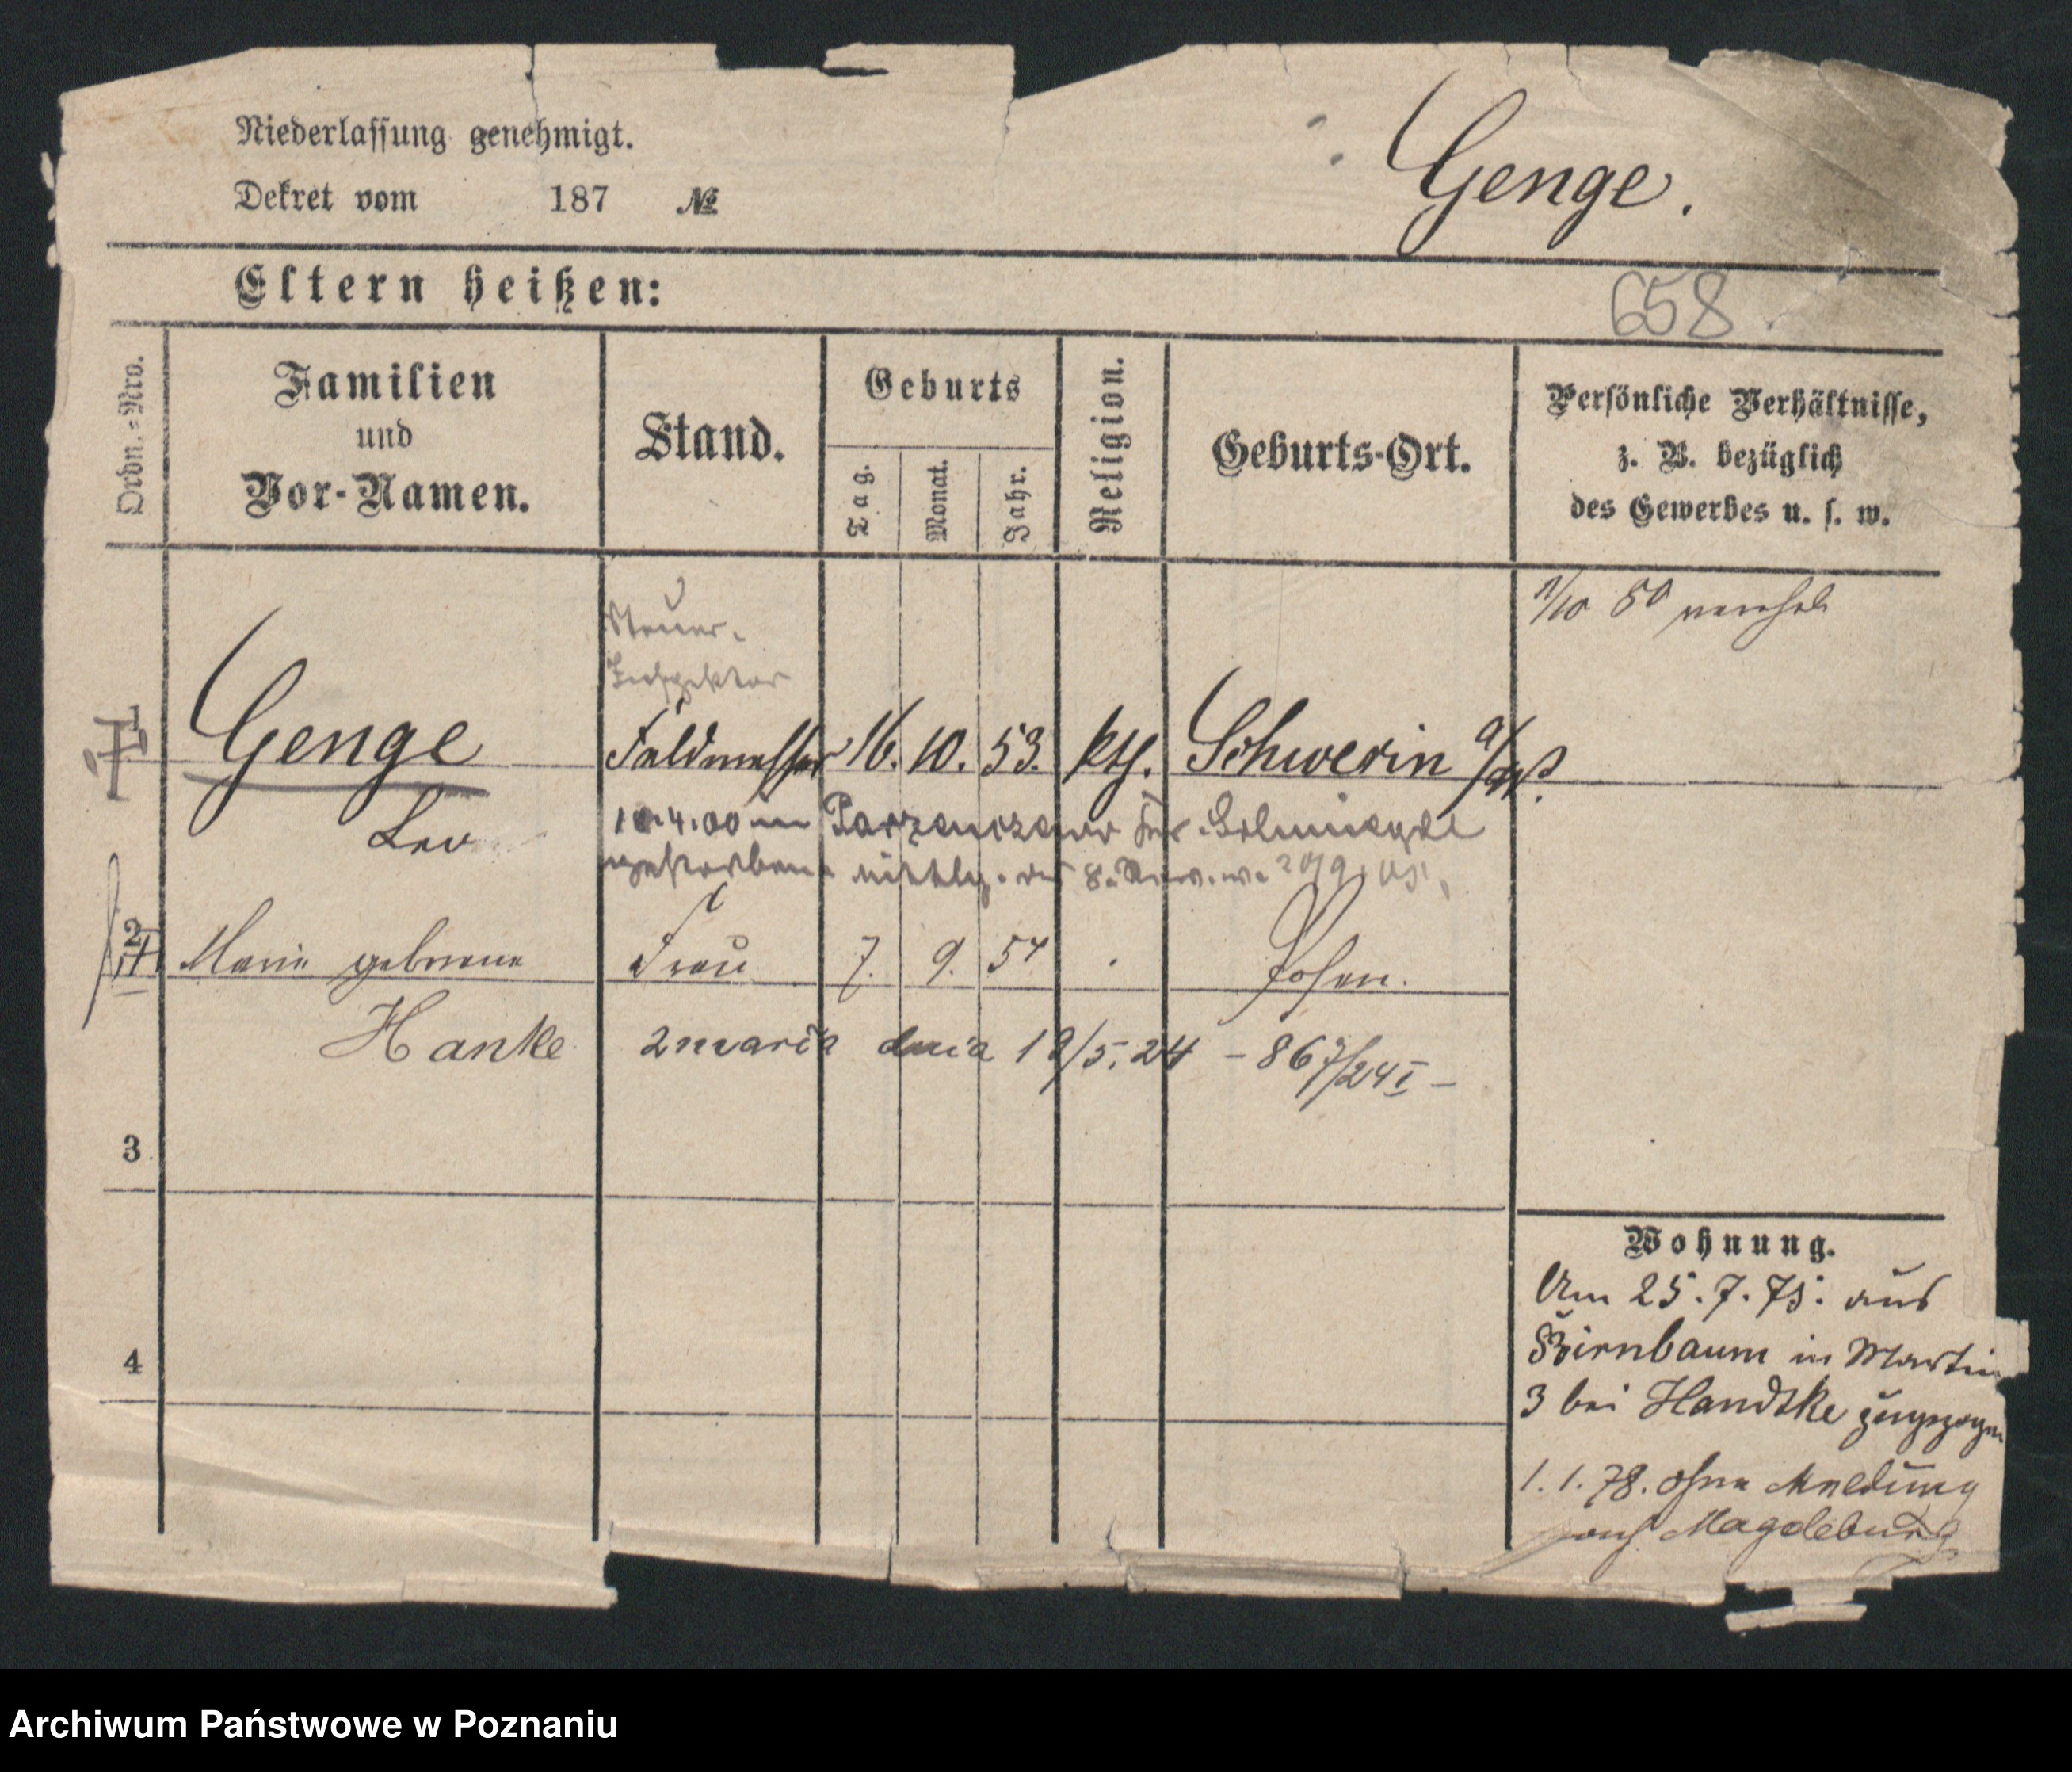 Niederlassung genehmigt.
Dekret vom 187 №
Genge.
Eltern heißen:
658
Ordn.-Nro.
Familien
und
Vor-Namen.
Stand.
Geburts
Tag.
Monat.
Jahr.
Religion.
Geburts-Ort.
Persönliche Verhältnisse,
z. B. bezüglich
des Gewerbes u. s. w.
1/10 80 verehel
Steuer-
Inspektor
Genge Feldmesser 16. 10. 53. kth. Schwerin a/W.
Leo
gestorben
2 Marie geborene Frau 7. 9. 54 Posen.
Hanke
zmarła dnia 19/5.24 - 867/24 I -
3
4
Wohnung.
Am 25.7.75. aus
Birnbaum in Martin
3 bei Handtke zugezogen
1.1.78. ohne Meldung
nach Magdeburg
Archiwum Państwowe w Poznaniu